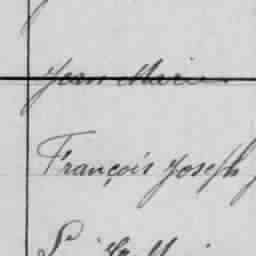 Jean Marie
François Joseph